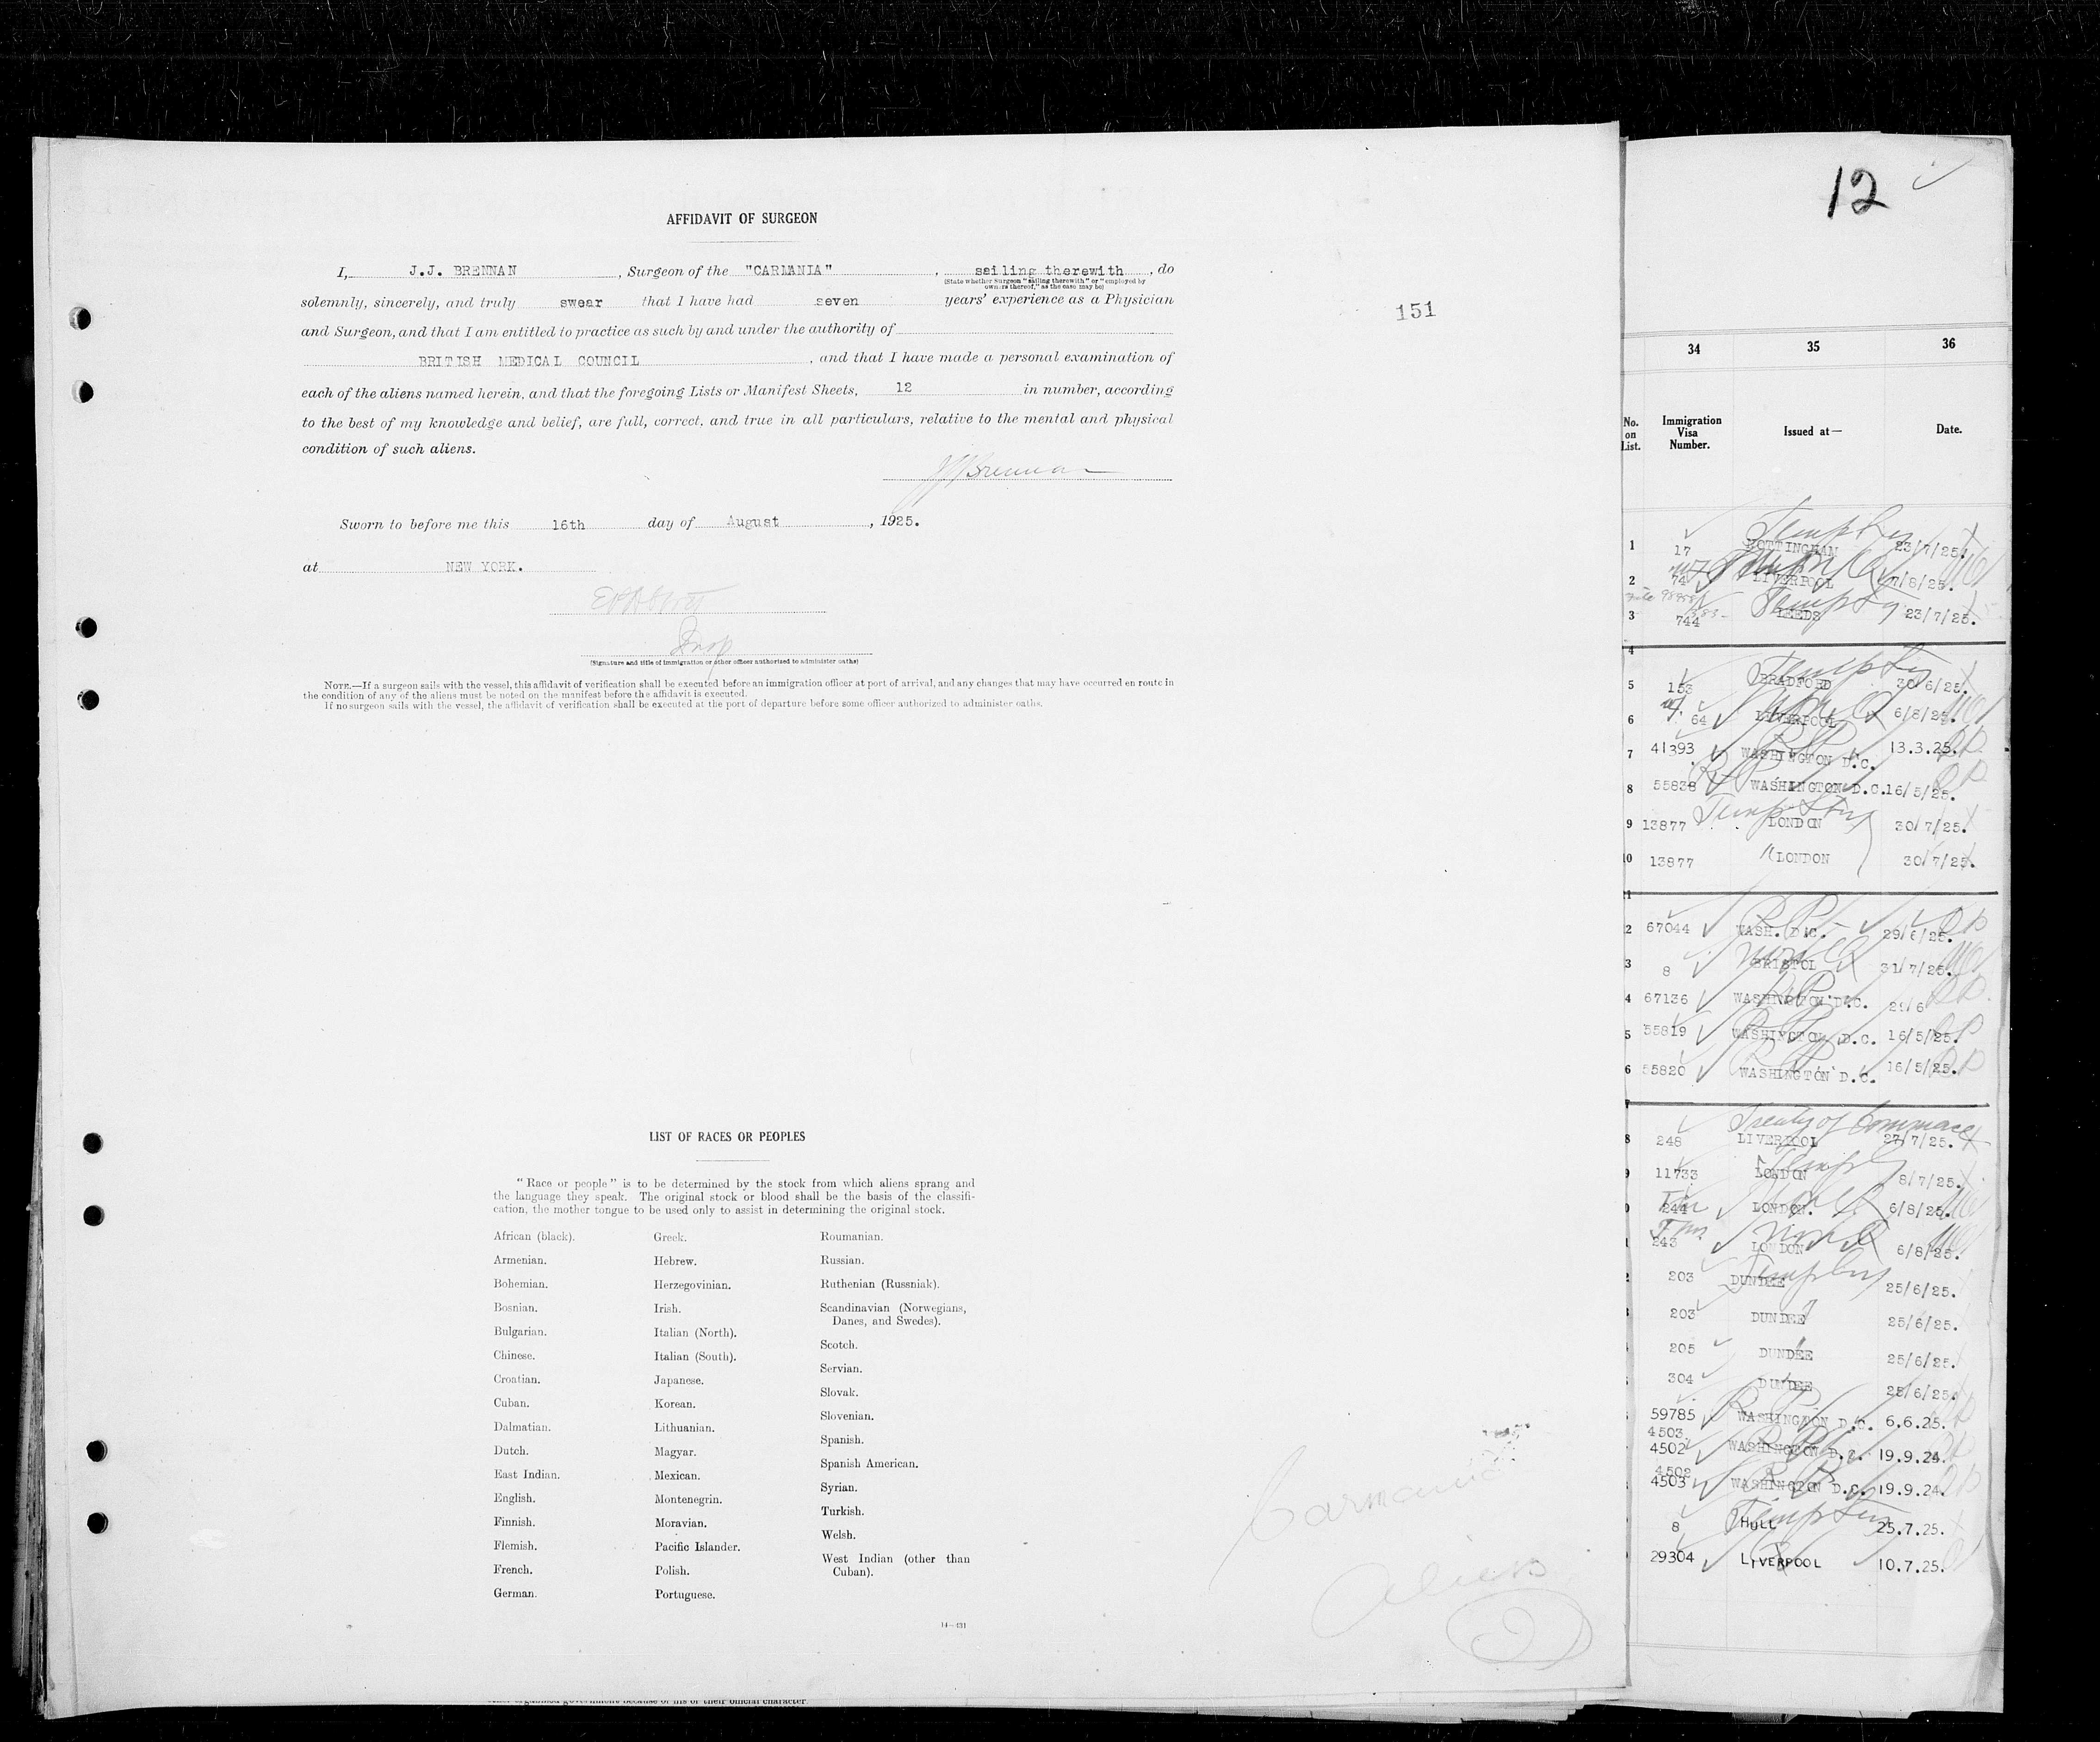 AFFIDAVIT OF SURGEON
I, J.J. BRENNAN , Surgeon of the "CARMANIA" , sailing therewith , do
(State whether Surgeon "sailing therewith" or "employed by
owners thereof," as the case may be)
solemnly, sincerely, and truly swear that I have had seven years' experience as a Physician
and Surgeon, and that I am entitled to practice as such by and under the authority of
BRITISH MEDICAL COUNCIL , and that I have made a personal examination of
each of the aliens named herein, and that the foregoing Lists or Manifest Sheets, 12 in number, according
to the best of my knowledge and belief, are full, correct, and true in all particulars, relative to the mental and physical
condition of such aliens.
JJBrennan
Sworn to before me this 16th day of August , 1925.
at NEW YORK.
Insp
(Signature and title of immigration or other officer authorized to administer oaths)
NOTE.—If a surgeon sails with the vessel, this affidavit of verification shall be executed before an immigration officer at port of arrival, and any changes that may have occurred en route in
the condition of any of the aliens must be noted on the manifest before the affidavit is executed.
If no surgeon sails with the vessel, the affidavit of verification shall be executed at the port of departure before some officer authorized to administer oaths.
151
LIST OF RACES OR PEOPLES
"Race or people" is to be determined by the stock from which aliens sprang and
the language they speak. The original stock or blood shall be the basis of the classifi-
cation, the mother tongue to be used only to assist in determining the original stock.
African (black).
Armenian.
Bohemian.
Bosnian.
Bulgarian.
Chinese.
Croatian.
Cuban.
Dalmatian.
Dutch.
East Indian.
English.
Finnish.
Flemish.
French.
German.
Greek.
Hebrew.
Herzegovinian.
Irish.
Italian (North).
Italian (South).
Japanese.
Korean.
Lithuanian.
Magyar.
Mexican.
Montenegrin.
Moravian.
Pacific Islander.
Polish.
Portuguese.
Roumanian.
Russian.
Ruthenian (Russniak).
Scandinavian (Norwegians,
Danes, and Swedes).
Scotch.
Servian.
Slovak.
Slovenian.
Spanish.
Spanish American.
Syrian.
Turkish.
Welsh.
West Indian (other than
Cuban).
14—431
Carmania
Aliens
2
12
34 35 36
No. on List. Immigration Visa Number. Issued at— Date.
1 17 NOTTINGHAM 23/7/25.
2 74 LIVERPOOL 7/8/25.
3 744 LEEDS 23/7/25.
4
5 153 BRADFORD 30/6/25.
6 64 LIVERPOOL 6/8/25.
7 41393 WASHINGTON D.C. 13.3.25.
8 55838 WASHINGTON D.C. 16/5/25.
9 13877 LONDON 30/7/25.
10 13877 LONDON 30/7/25.
11
2 67044 WASH. D.C. 29/6/25.
3 8 BRISTOL 31/7/25.
4 67136 WASHINGTON D.C. 29/6
5 55819 WASHINGTON D.C. 16/5/25.
6 55820 WASHINGTON D.C. 16/5/25.
7
Treaty of Commerce
8 248 LIVERPOOL 27/7/25.
9 11733 LONDON 8/7/25.
0 244 LONDON. 6/8/25.
243 LONDON 6/8/25.
203 DUNDEE 25/6/25.
203 DUNDEE 25/6/25.
205 DUNDEE 25/6/25.
304 DUNDEE 25/6/25.
59785 WASHINGTON D.C. 6.6.25.
4503
4502 WASHINGTON D.C. 19.9.24.
4502
4503 WASHINGTON D.C. 19.9.24.
8 HULL 25.7.25.
29304 LIVERPOOL 10.7.25.